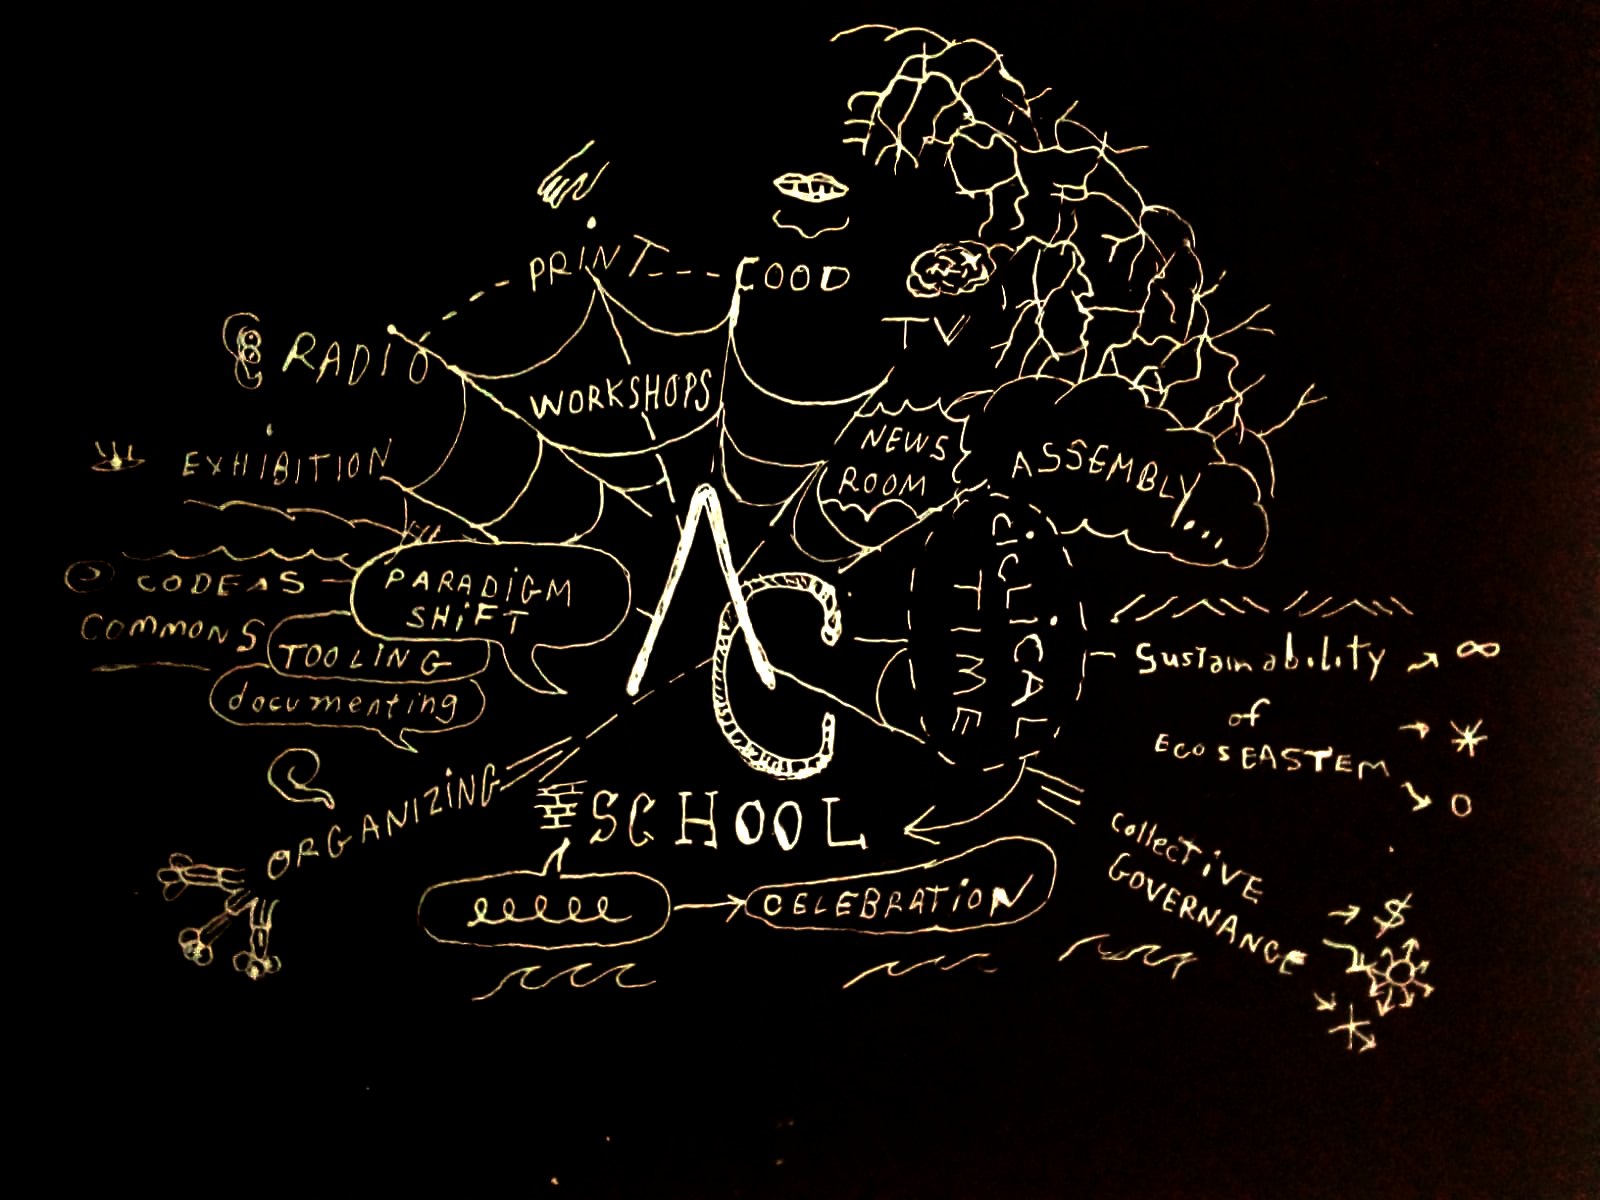 PRINT
FOOD
TV
RADIO
WORKSHOPS
NEWS
ROOM
ASSEMBLY...
EXHIBITION
CODE AS
COMMONS
PARADiGM
SHiFT
TOOLING
documenting
AC
CiCLiCAL
TIME
Sustainability
of
ECOSEASTEM
ORGANIZING
SCHOOL
CELEBRATiON
CollecTiVE
GOVERNANCE
$